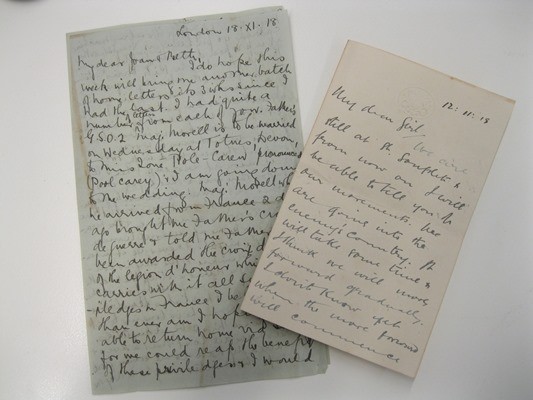 London 18.XI.18
My dear Joan & Betty,
I do hope this
week will bring me another batch
of home letters, it is 3 wks since I
had the last. I had quite a
number from each of you. Father's
letters
G.S.O.2 Maj. Morell is to be married
on Wednesday at Totnes, Devon,
to Miss Pole-Carew pronounced
(Pool carey) & I am going down
to the wedding. Maj. Morell wh
he arrived from France
ago brought me Father's cro
de guerre & told me Father
been awarded the croix d
of the legion d'honeur
carries with it all
ileges in France I
than ever am I hop
able to return home via
for me could reap the benef
of these priviledges & I would
12.11.18
My dear Girl.
We are
still at St. &
from now on I will
be able to tell you
our movements. We
are going into the
enemy's Country. It
will take some time &
I think we will move
forward gradually.
I don't know yet
when the move forward
will commence